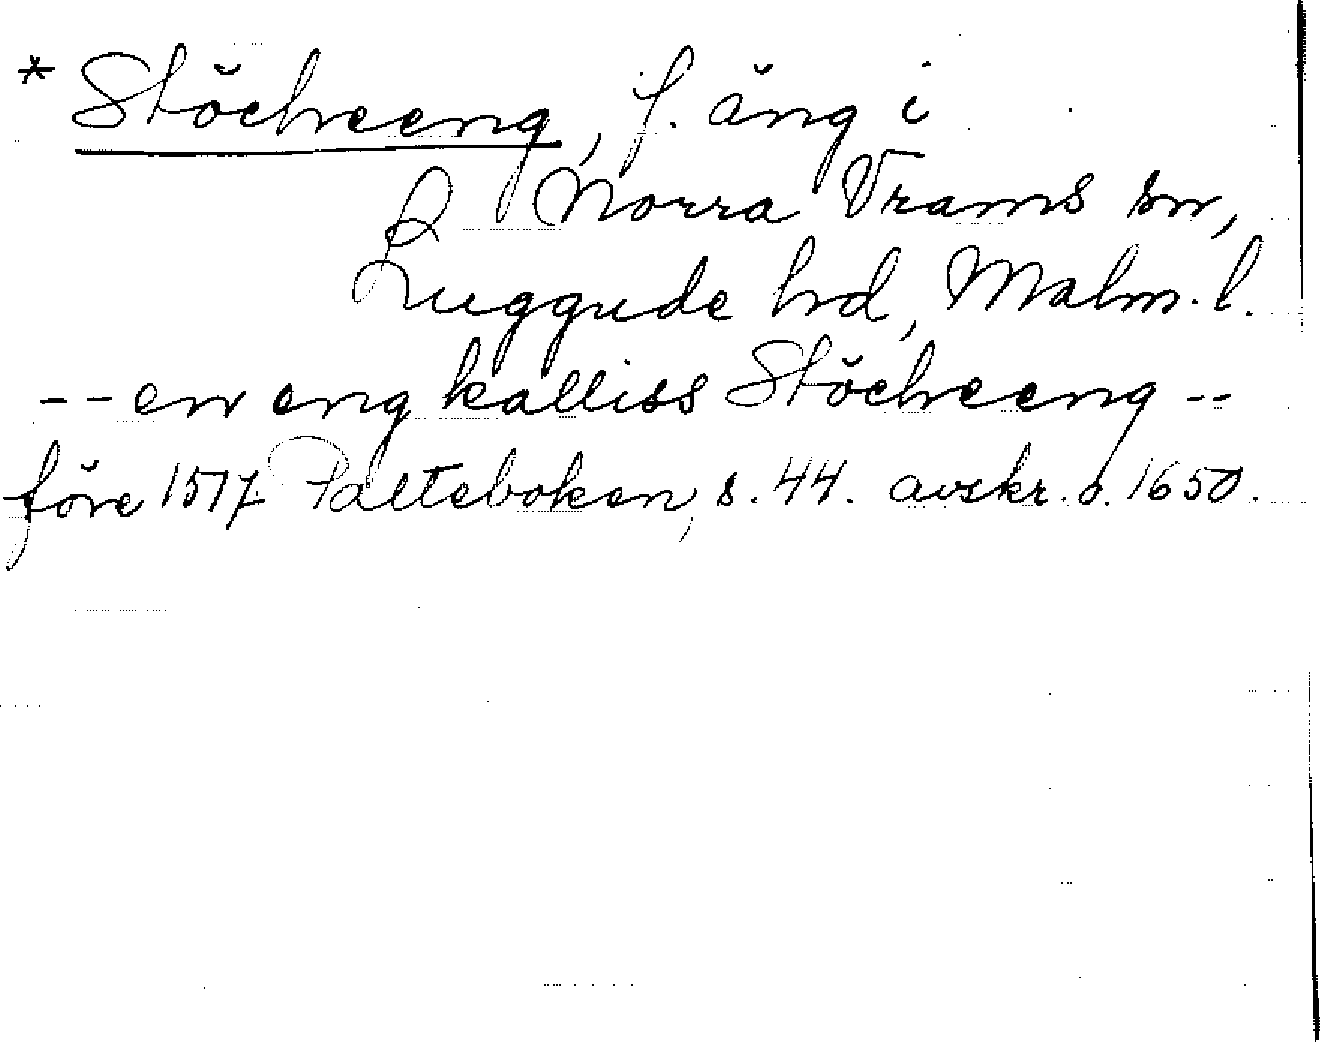 * Stöchreeng, f. äng i
Norra Vrams sn,
Luggude hrd, Malm. l.
-- en eng kalliss Stöchreeng --
före 1517 Palteboken, s. 44. avskr. o. 1650.